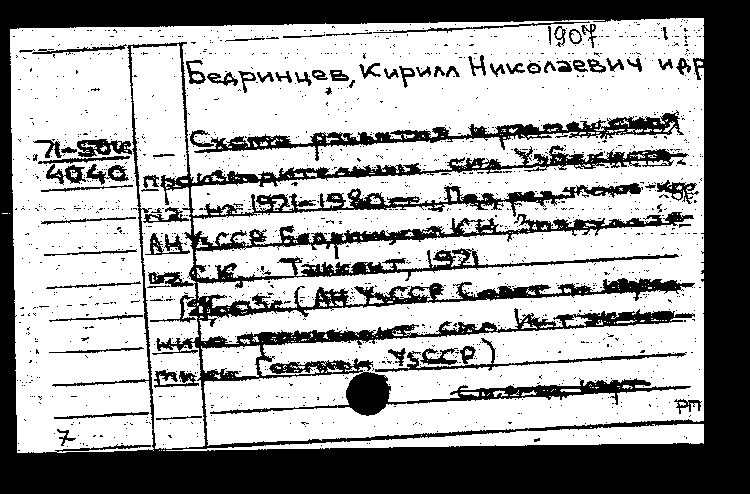 1907
Бедринцев, Кирилл Николаевич и др
71-50
4040
Схема развития и размещения
производительных сил Узбекиста-
на на 1971-1980 гг. Под ред. членов-кор.
АН УзССР Бедринцева К.Н.,
С.К. Ташкент, 1971
(АН УзССР Совет по изуче-
нию производит. сил. Ин-т эконо-
мики Госплан УзССР)
См. след. карт
РП